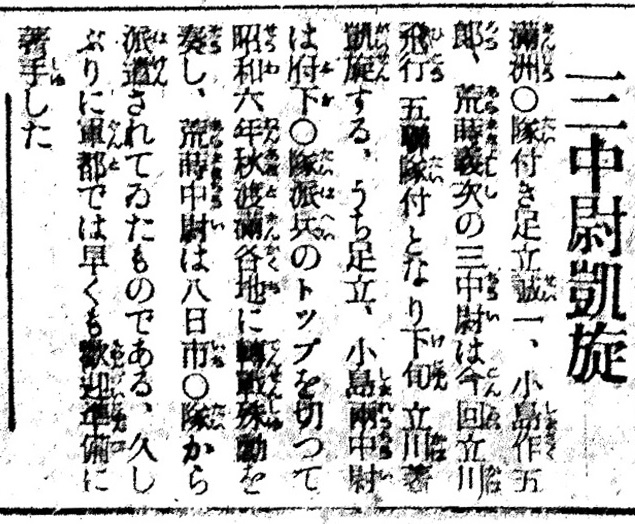 三中尉凱旋
満洲〇隊付き足立誠一、小島作五
郎、荒蒔義次の三中尉は今回立川
飛行五聯隊付となり下旬立川著
凱旋する、うち足立、小島両中尉
は府下〇隊派兵のトップを切つて
昭和六年秋渡満各地に転戦殊勲を
奏し、荒蒔中尉は八日市〇隊から
派遣されてゐたものである、久し
ぶりに軍都では早くも歓迎準備に
著手した